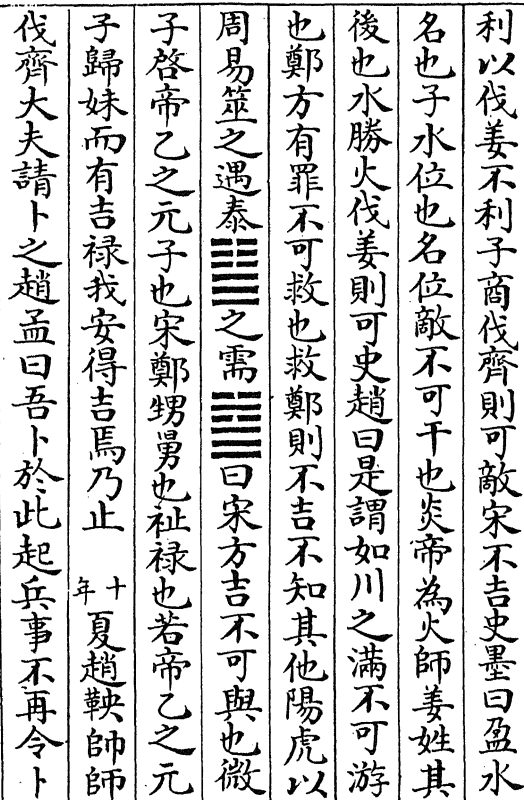 利以伐姜不利子商伐齊則可敵宋不吉史墨曰盈水
名也子水位也名位敵不可干也炎帝為火師姜姓其
後也水勝火伐姜則可史趙曰是謂如川之滿不可游
也鄭方有罪不可救也救鄭則不吉不知其他陽虎以
周易筮之遇泰䷊之需䷄曰宋方吉不可與也微
子啓帝乙之元子也宋鄭甥舅也祉禄也若帝乙之元
子歸妹而有吉禄我安得吉焉乃止 十年 夏趙鞅帥師
伐齊大夫請卜之趙孟曰吾卜於此起兵事不再令卜